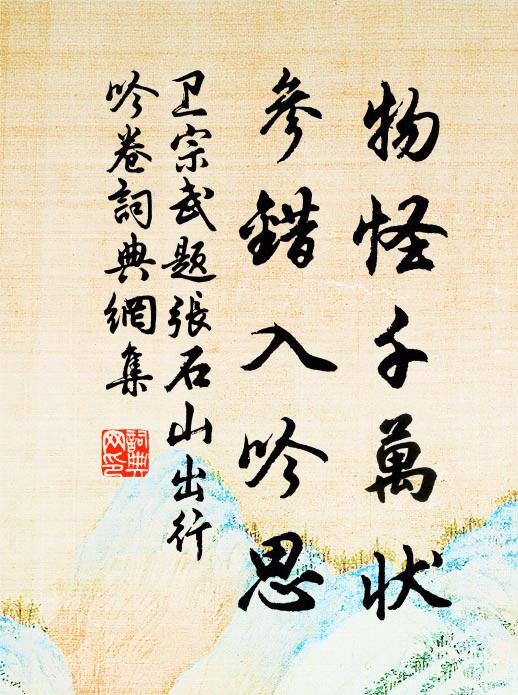 物怪千萬状
參錯入吟思
卫宗武题張石山出行
吟卷詞典網集
詞典网印